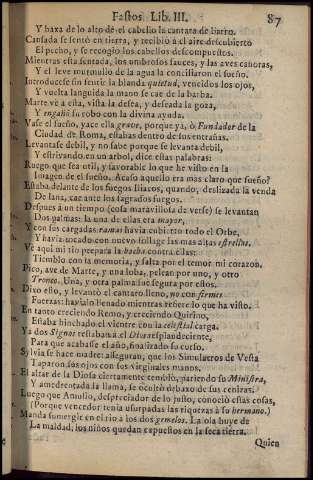 Fastos. Lib. III. 87
Y baxa de lo alto de el cabello la cantara de barro.
Cansada se sentó en tierra, y recibió à el aire descubierto
El pecho, y se recogiò los cabellos descompuestos.
Mientras està sentada, los umbrosos sauces, y las aves canoras,
Y el leve murmullo de la agua la conciliaron el sueño.
Introducese sin sentir la blanda quietud, vencidos los ojos,
Y vuelta languida la mano se cae de la barba.
Marte vè à esta, vista la desea, y deseada la goza,
Y engañò su robo con la divina ayuda.
Vase el sueño, yace ella grave, porque yà, ò Fundador de la
Ciudad de Roma, estabas dentro de sus entrañas.
Levantase debil, y no sabe porque se levanta debil,
Y estrivando en un arbol, dice estas palabras:
Ruego que sea util, y favorable lo que he visto en la
Imagen de el sueño. Acaso aquello era mas claro que sueño?
Estaba delante de los fuegos Iliacos, quando, deslizada la venda
De lana, cae ante los sagrados fuegos.
Despues à un tiempo (cosa maravillosa de verse) se levantan
Dos palmas: la una de ellas era mayor,
Y con sus cargadas ramas havia cubierto todo el Orbe,
Y havia tocado con nuevo follage las mas altas estrellas.
Vè aqui mi tio prepara la hacha contra ellas:
Tiemblo con la memoria, y salta por el temor mi corazon.
Pico, ave de Marte, y una loba, pelean por uno, y otro
Tronco. Una, y otra palma fue segura por estos.
Dixo esto, y levantò el cantaro lleno, no con firmes
Fuerzas: havialo llenado mientras refiere lo que ha visto.
En tanto creciendo Remo, y creciendo Quirino,
Estaba hinchado el vientre con la celestial carga.
Ya dos Signos restaban à el Dios resplandeciente,
Para que acabase el año, finalizado su curso.
Sylvia se hace madre: aseguran, que los Simulacros de Vesta
Taparon sus ojos con sus virginales manos.
El altar de la Diosa ciertamente temblò, pariendo su Ministra,
Y amedrentada la llama, se ocultó debaxo de sus cenizas.
Luego que Amulio, despreciador de lo justo, conociò estas cosas,
(Porque vencedor tenia usurpadas las riquezas à su hermano.)
Manda sumergir en el rio à los dos gemelos. La ola huye de
La maldad: los niños quedan expuestos en la seca tierra.
Quien